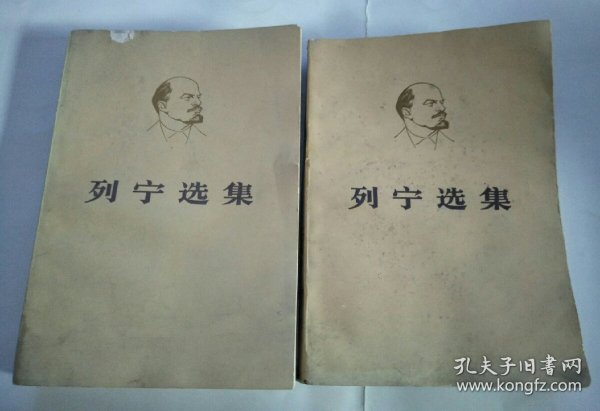 列宁选集
列宁选集
孔夫子旧书网
www.kongfz.com